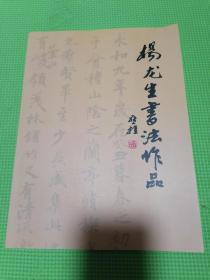 楊龙生書法作品
永和九年歲在癸丑暮春之初
于會稽山陰之蘭亭脩禊
羣賢畢至少長咸集此
有領茂林脩竹又有清流